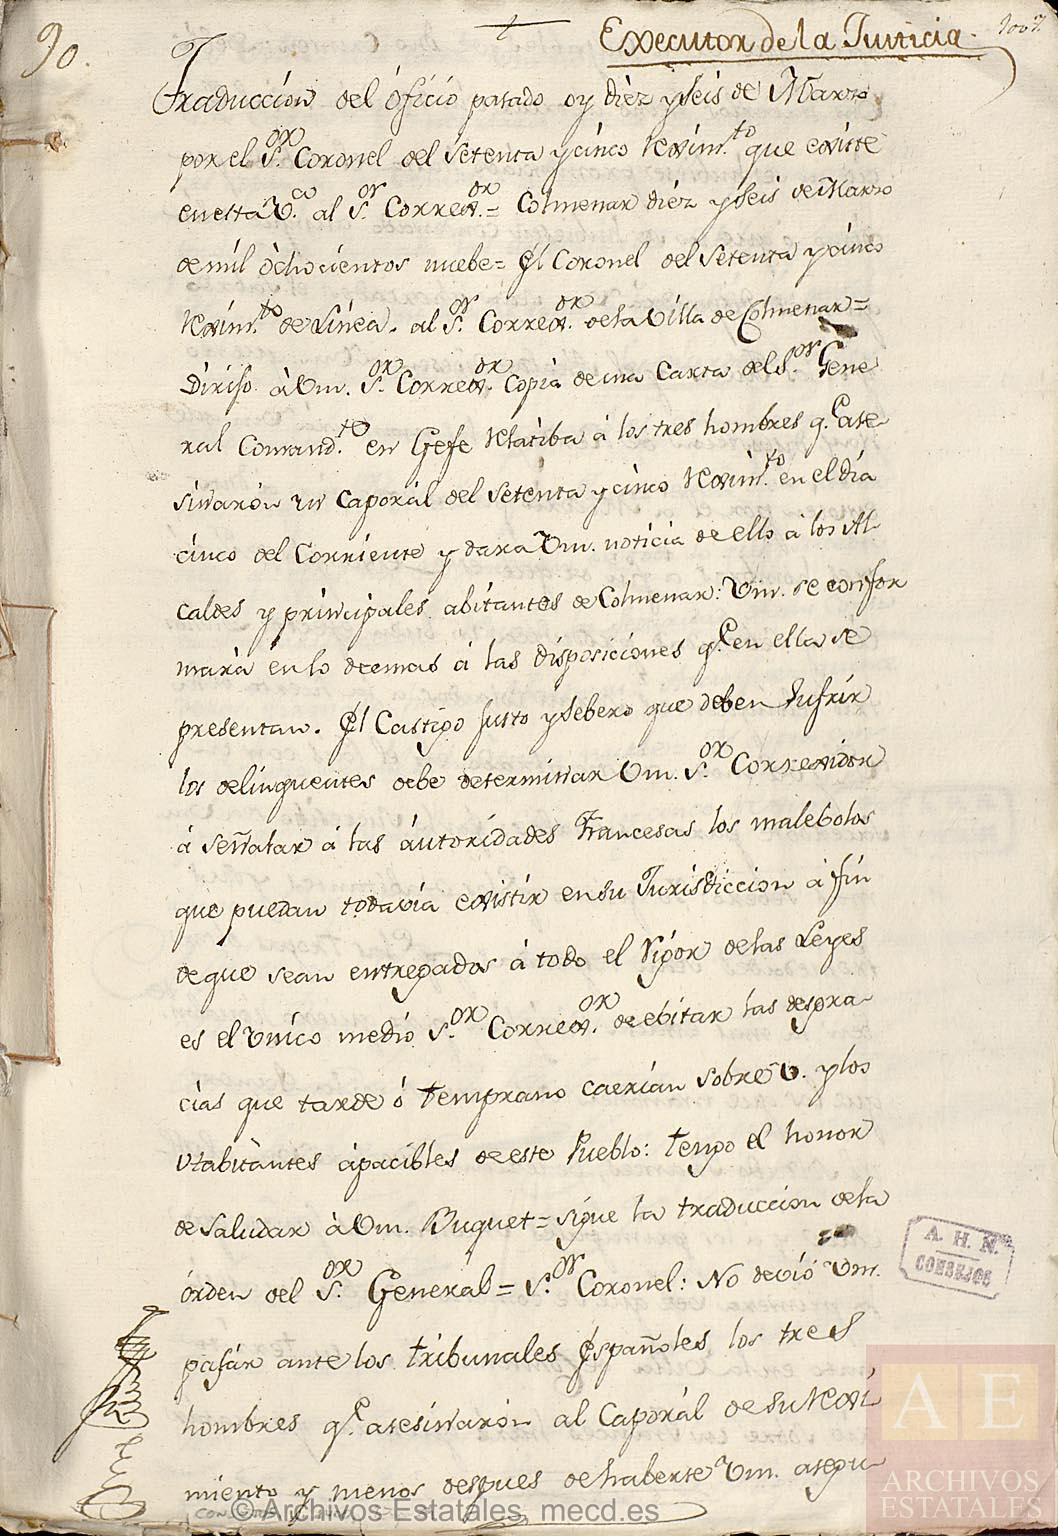 90.
Executor de la Justicia.
Traduccion del óficio pasado oy diez y seis de Marzo
por el S.or Coronel del setenta y cinco Reximto que existe
en esta V.a al S.or Correxor = Colmenar diez y seis de Marzo
de mil òchocientos nuebe = El Coronel del setenta y cinco
Reximto de Linea. al S.or Correxor de la Villa de Colmenar =
Dirijo à Vm. S.or Correxor copia de una Carta del S.or Gene
ral Comandte en Gefe relatiba á los tres hombres q.e ase-
sinarón un Caporál del setenta y cinco Reximto en el dia
cinco del Corriente y dara Vm. noticia de ello á los Al
caldes y principales abitantes de Colmenar: Vm. se confor
mará en lo demas á las disposiciones q.e en ella se
presentan. El Castigo justo y sebero que deben sufrir
los delinquentes debe determinar Vm. S.or Correxidor
á señalar á las áutoridades Francesas los malebolos
que puedan todavia existir en su Jurisdiccion á fin
de que sean entregados á todo el Rigor de las Leyes
es el Vnico medio S.or Correxor de ebitar las desgra-
cias que tarde ó temprano caerian sobre V. y los
Habitantes ápacibles de este Pueblo: tengo el honor
de saludar à Vm. Buquet = sigue la traduccion de la
órden del S.or General = S.or Coronel: No devió Vm.
pasár ante los tribunales Españoles los tres
hombres q.e asesinarón al Caporál de su Rexi
miento y menos despues de haberse Vm. asegu
A. H. N.
CONSEJOS
AE
ARCHIVOS
ESTATALES
© Archivos Estatales, mecd.es